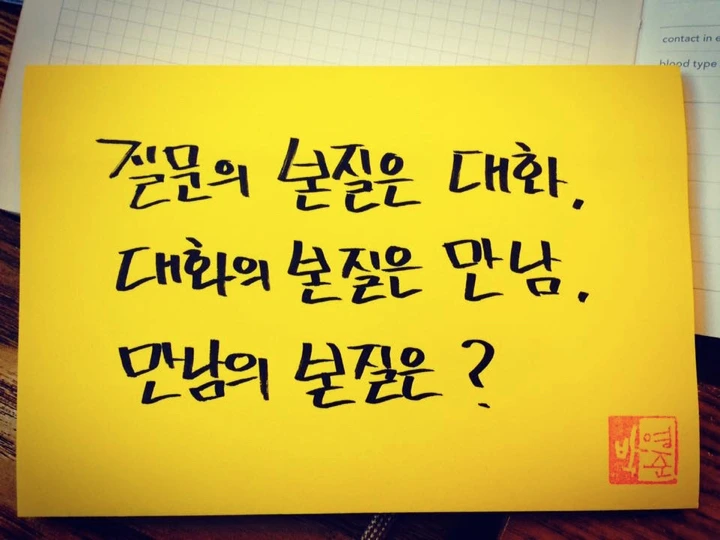 contact in e
blood type
질문의 본질은 대화.
대화의 본질은 만남.
만남의 본질은?